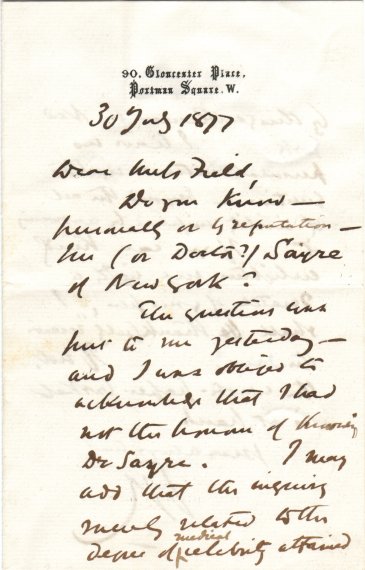 90, Gloucester Place,
Portman Square. W.
30 July 1877
Dear Mrs Field
Do you know —
personally or by reputation —
Mr (or Doctor?) Sayre
of New York?
The question was
put to me yesterday —
and I was obliged to
acknowledge that I had
not the honour of knowing
Dr Sayre. I may
add that the inquiry
merely related to the
degree of medical celebrity attained